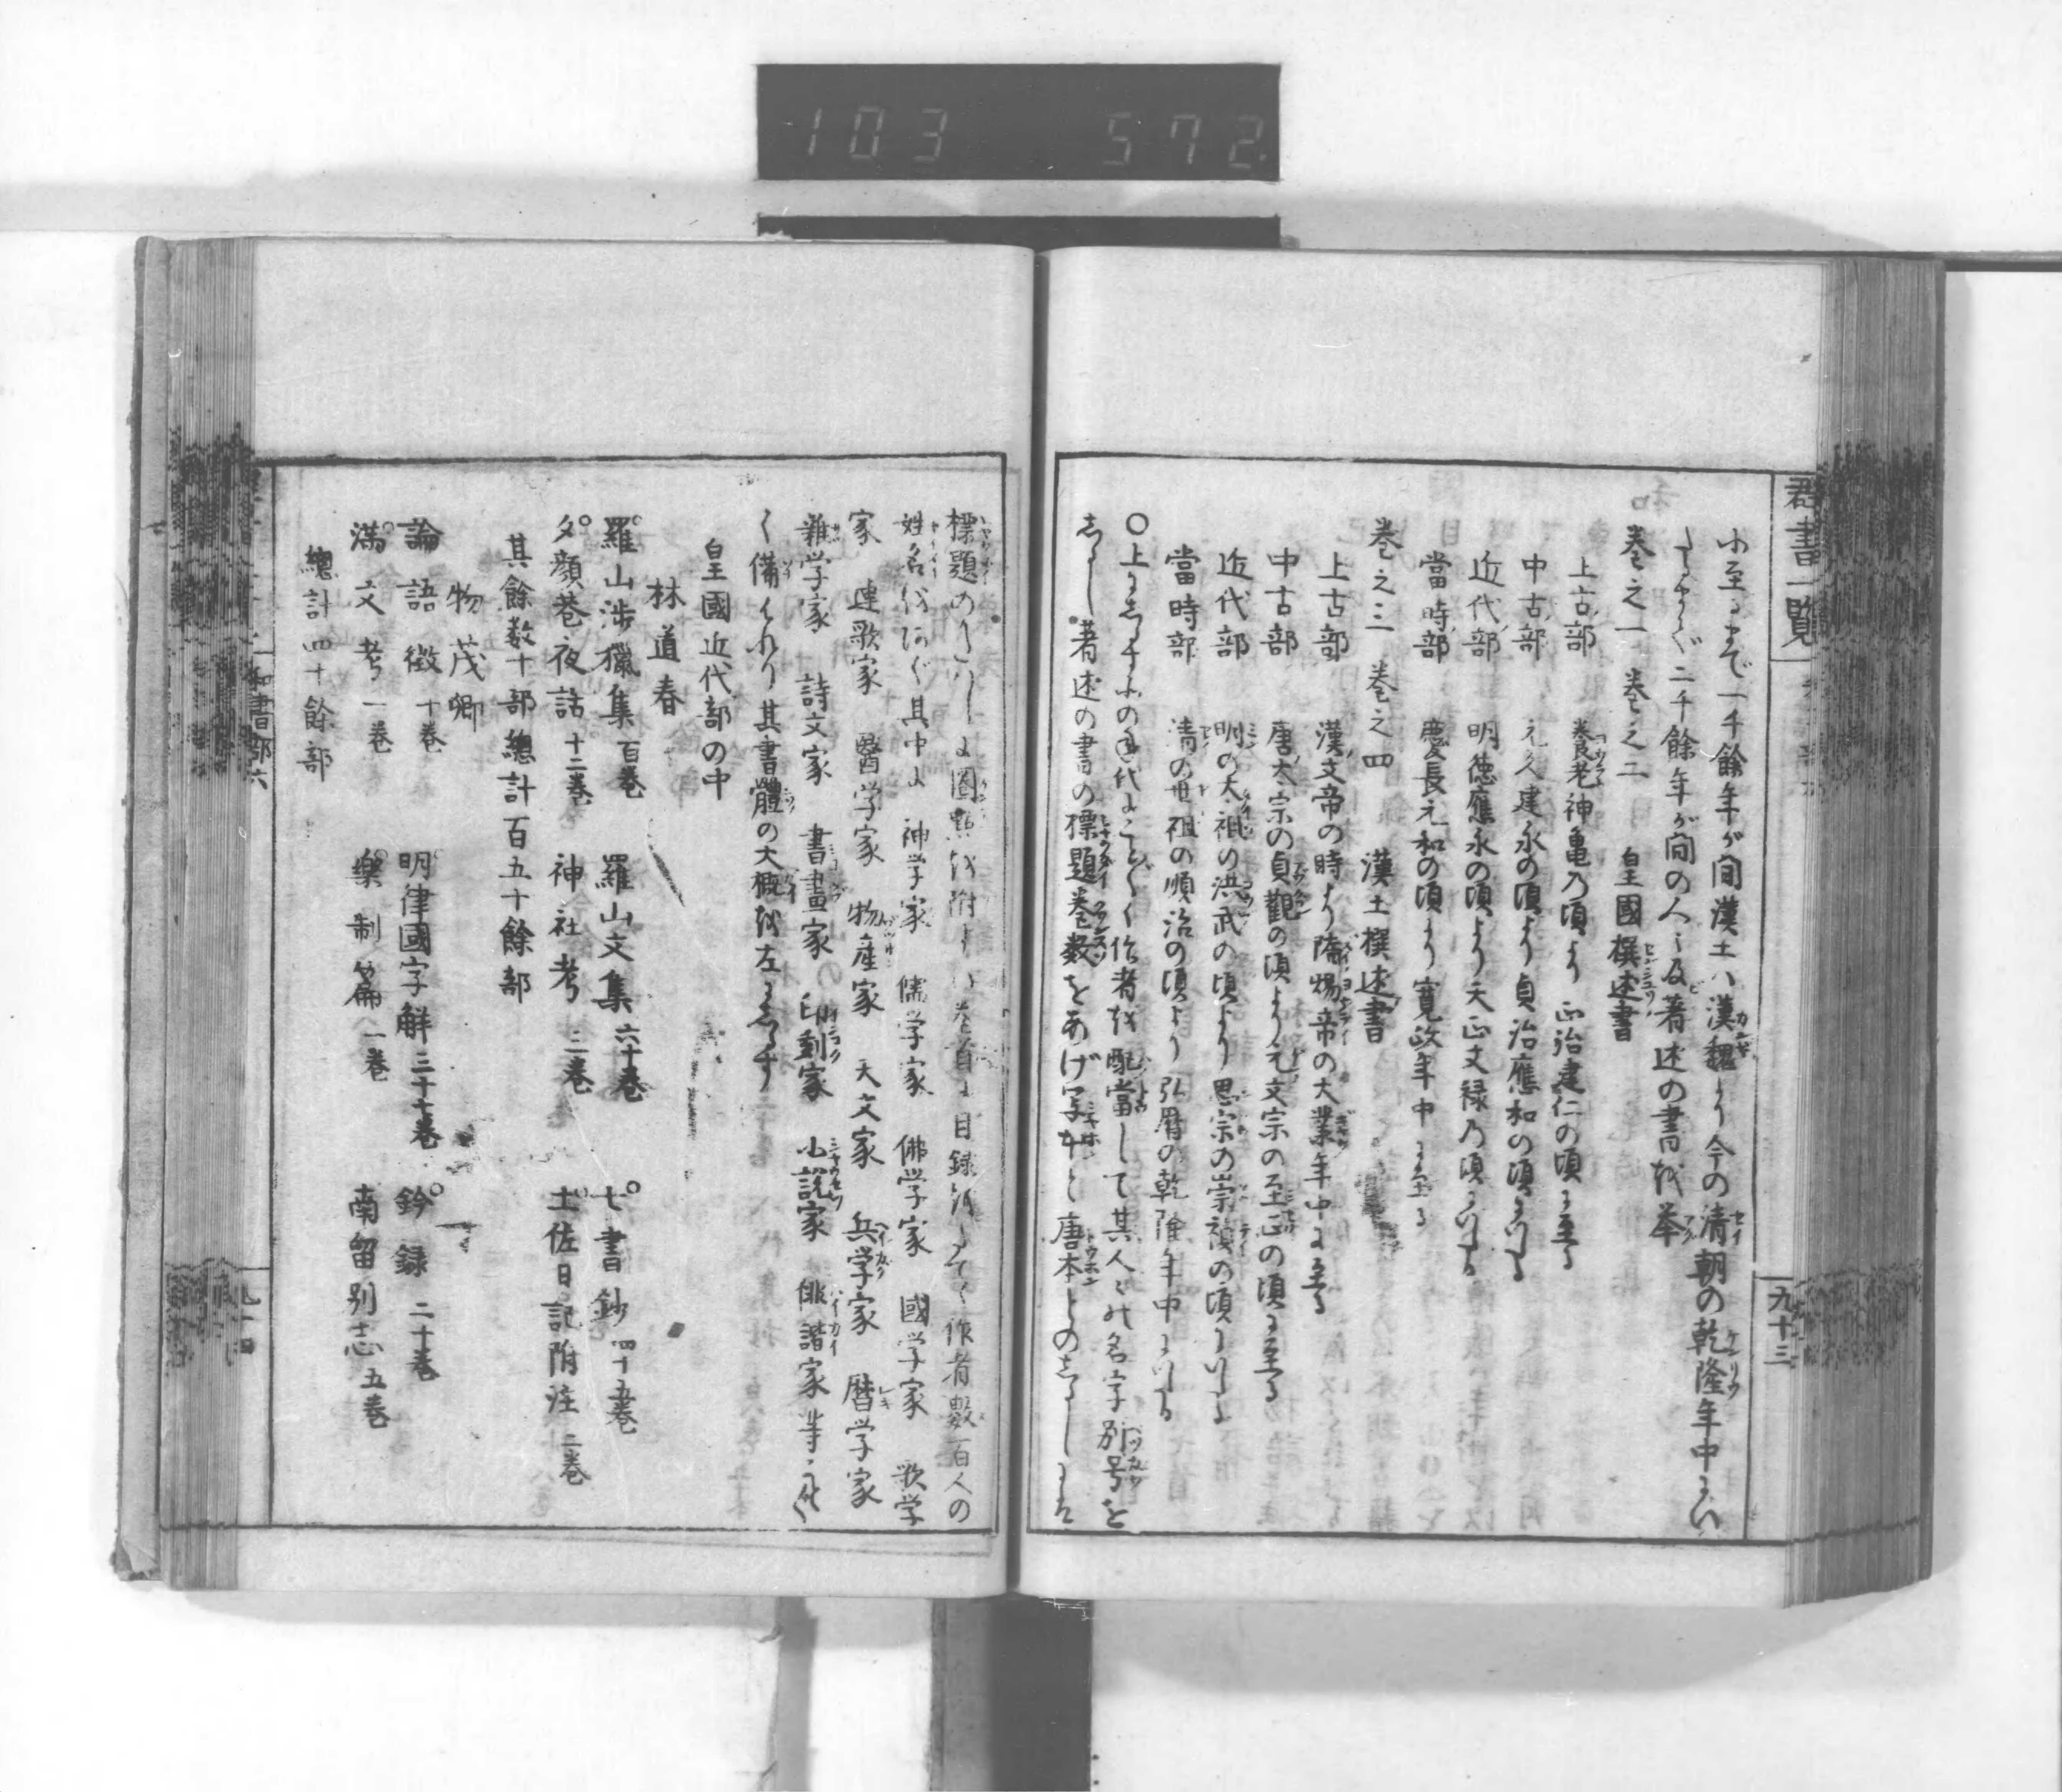 103 572
群書一覧
九十三
に至るまで一千餘年が間漢土ハ漢魏より今の清朝の乾隆年中にい
たるまで二千餘年が間の人〻及著述の書を挙
巻之一 巻之二 皇國撰述書
上古部 養老神亀乃頃より 正治建仁の頃に至る
中古部 元久建永の頃より貞治應和の頃にいたる
近代部 明徳應永の頃より天正文禄乃頃にいたる
當時部 慶長元和の頃より寛政年中に至る
巻之三 巻之四 漢土撰述書
上古部 漢文帝の時より隋煬帝の大業年中に至る
中古部 唐太宗の貞觀の頃より元文宗の至正の頃に至る
近代部 明の太祖の洪武の頃より思宗の崇禎の頃にいたる
當時部 清の世祖の順治の頃より弘暦の乾隆年中にいたる
○上にしるす所の年代にことごとく作者を配當して其人〻の名字別号を
しるし著述の書の標題巻数をあげ写本と唐本とのしるしには
標題の に圏點を附 巻首に目録 作者數百人の
姓名を 其中に 神学家 儒学家 佛学家 國学家 歌学
家 連歌家 醫学家 物産家 天文家 兵学家 暦学家
雜学家 詩文家 書畫家 印劃家 小説家 俳諧家等 
く備ハれり其書體の大概を左にしるす
皇國近代部の中
林道春
羅山渉獵集 百巻 羅山文集 六十巻 七書鈔 四十五巻
夕顔巷夜話 十二巻 神社考 三巻 土佐日記附注 二巻
其餘数十部總計百五十餘部
物茂卿
論語徴 十巻 明律國字解 三十七巻 鈐録 二十巻
満文考 一巻 樂制篇 一巻 南留別志 五巻
總計四十餘部
和書部六